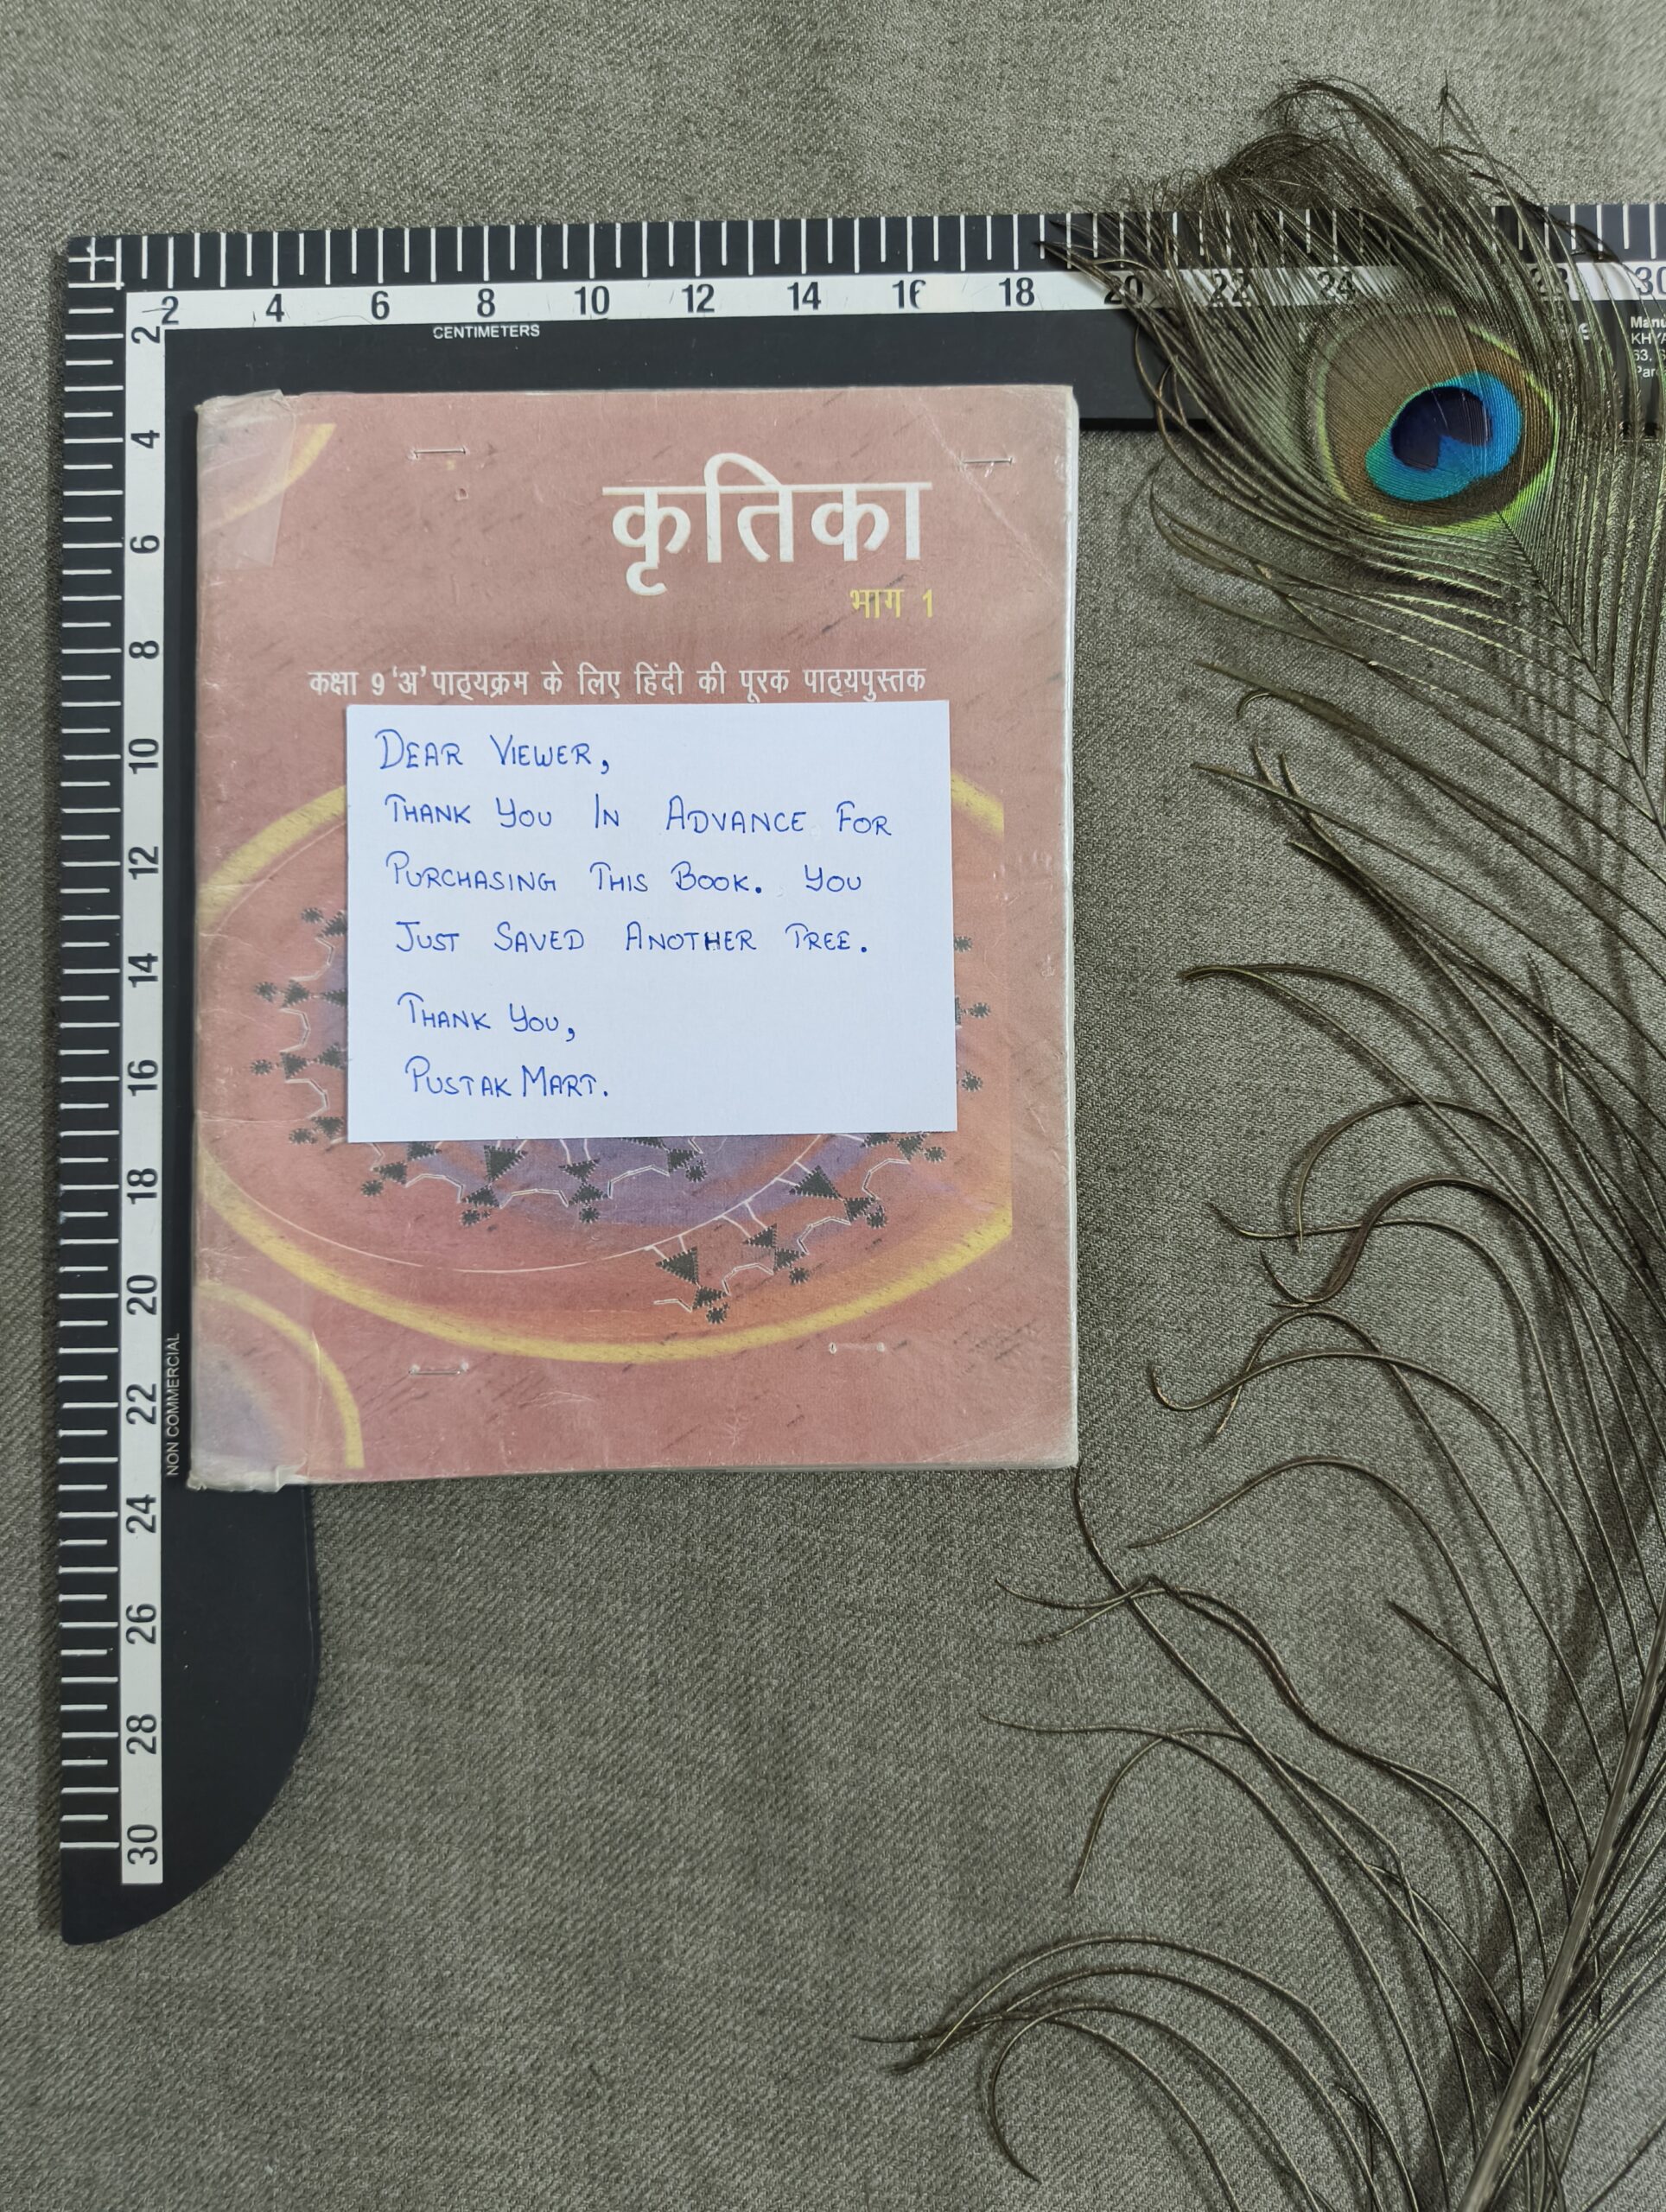 2 4 6 8 10 12 14 16 18 20 22 24 28 30
CENTIMETERS
Manu
KHYA
63, S
Pare
2
4
6
8
10
12
14
16
18
20
22
24
26
28
30
NON COMMERCIAL
कृतिका
भाग 1
कक्षा 9 'अ' पाठ्यक्रम के लिए हिंदी की पूरक पाठ्यपुस्तक
DEAR VIEWER,
THANK YOU IN ADVANCE FOR
PURCHASING THIS BOOK. YOU
JUST SAVED ANOTHER TREE.
THANK YOU,
PUSTAK MART.